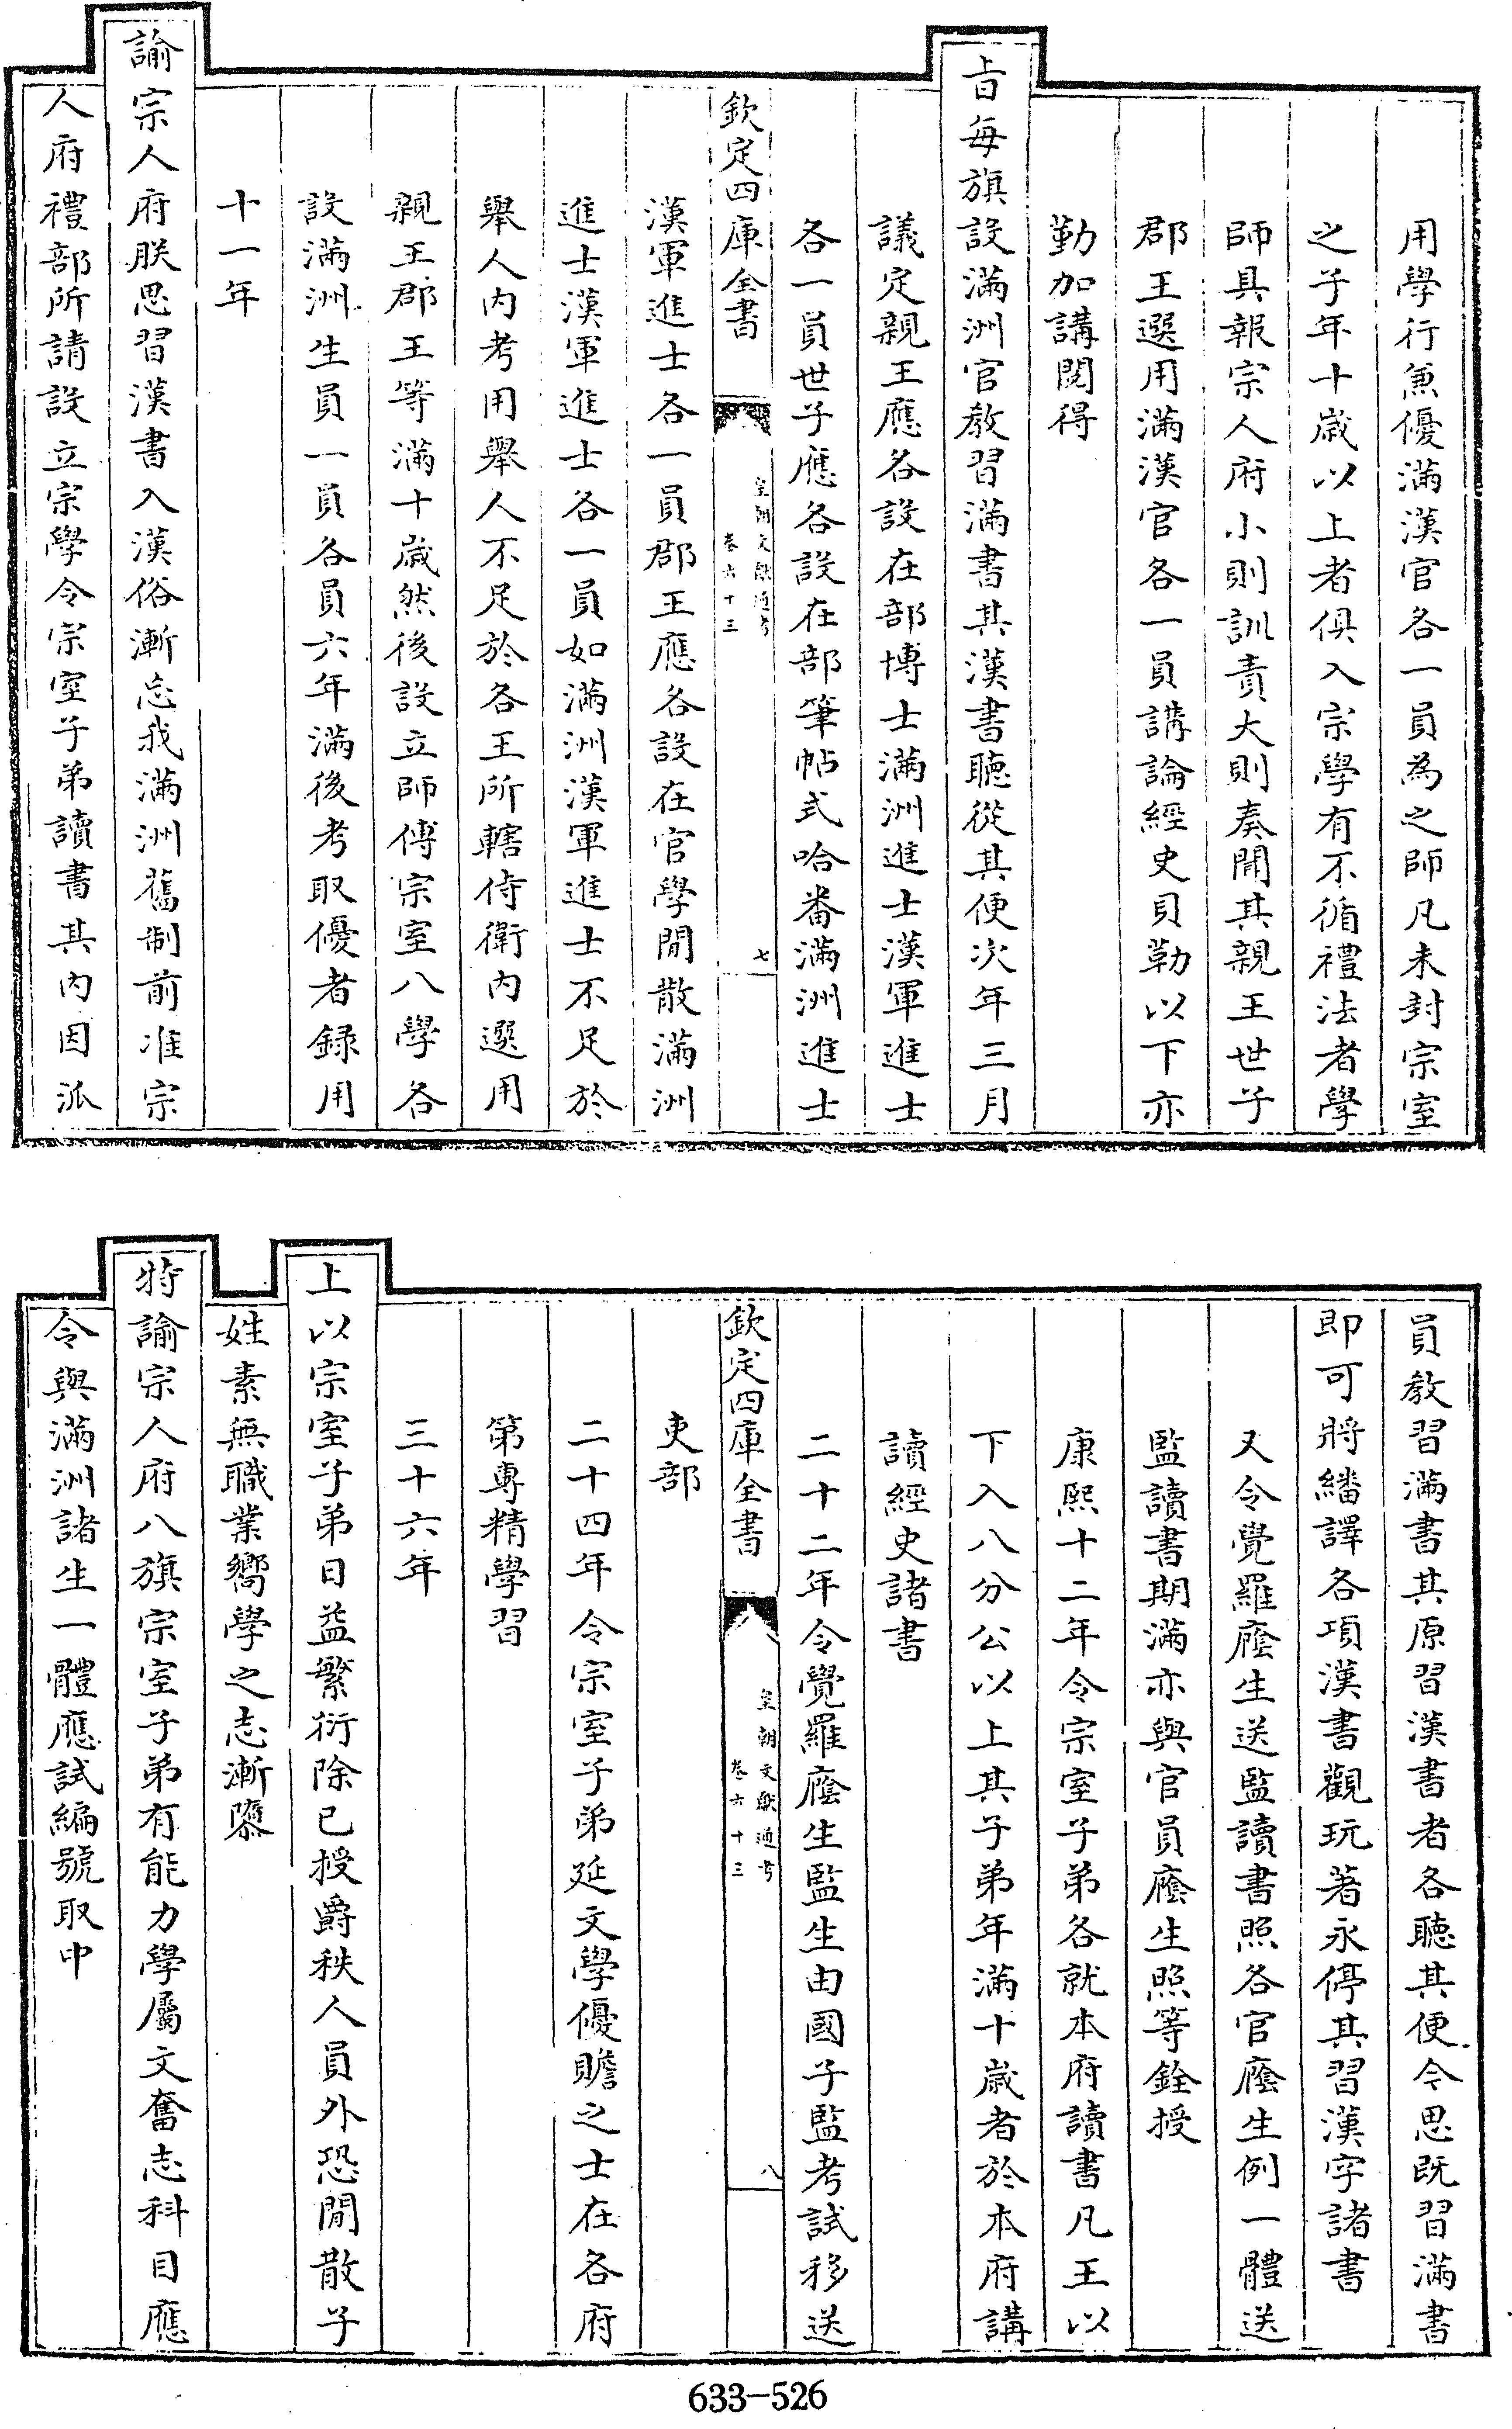 用學行兼優滿漢官各一員為之師凡未封宗室
之子年十歲以上者俱入宗學有不循禮法者學
師具報宗人府小則訓責大則奏聞其親王世子
郡王選用滿漢官各一員講論經史貝勒以下亦
勤加講閱得
旨每旗設滿洲官教習滿書其漢書聽從其便次年三月
議定親王應各設在部博士滿洲進士漢軍進士
各一員世子應各設在部筆帖式哈番滿洲進士
欽定四庫全書
皇朝文獻通考
卷六十三
七
漢軍進士各一員郡王應各設在官學閒散滿洲
進士漢軍進士各一員如滿洲漢軍進士不足於
舉人內考用舉人不足於各王所轄侍衛內選用
親王郡王等滿十歲然後設立師傅宗室八學各
設滿洲生員一員各員六年滿後考取優者錄用
十一年
諭宗人府朕思習漢書入漢俗漸忘我滿洲舊制前准宗
人府禮部所請設立宗學令宗室子弟讀書其內因派
員教習滿書其原習漢書者各聽其便今思既習滿書
即可將繙譯各項漢書觀玩著永停其習漢字諸書
又令覺羅廕生送監讀書照各官廕生例一體送
監讀書期滿亦與官員廕生照等銓授
康熙十二年令宗室子弟各就本府讀書凡王以
下入八分公以上其子弟年滿十歲者於本府講
讀經史諸書
二十二年令覺羅廕生監生由國子監考試移送
欽定四庫全書
皇朝文獻通考
卷六十三
八
吏部
二十四年令宗室子弟延文學優贍之士在各府
第專精學習
三十六年
上以宗室子弟日益繁衍除已授爵秩人員外恐閒散子
姓素無職業嚮學之志漸隳
特諭宗人府八旗宗室子弟有能力學屬文奮志科目應
令與滿洲諸生一體應試編號取中
633-526